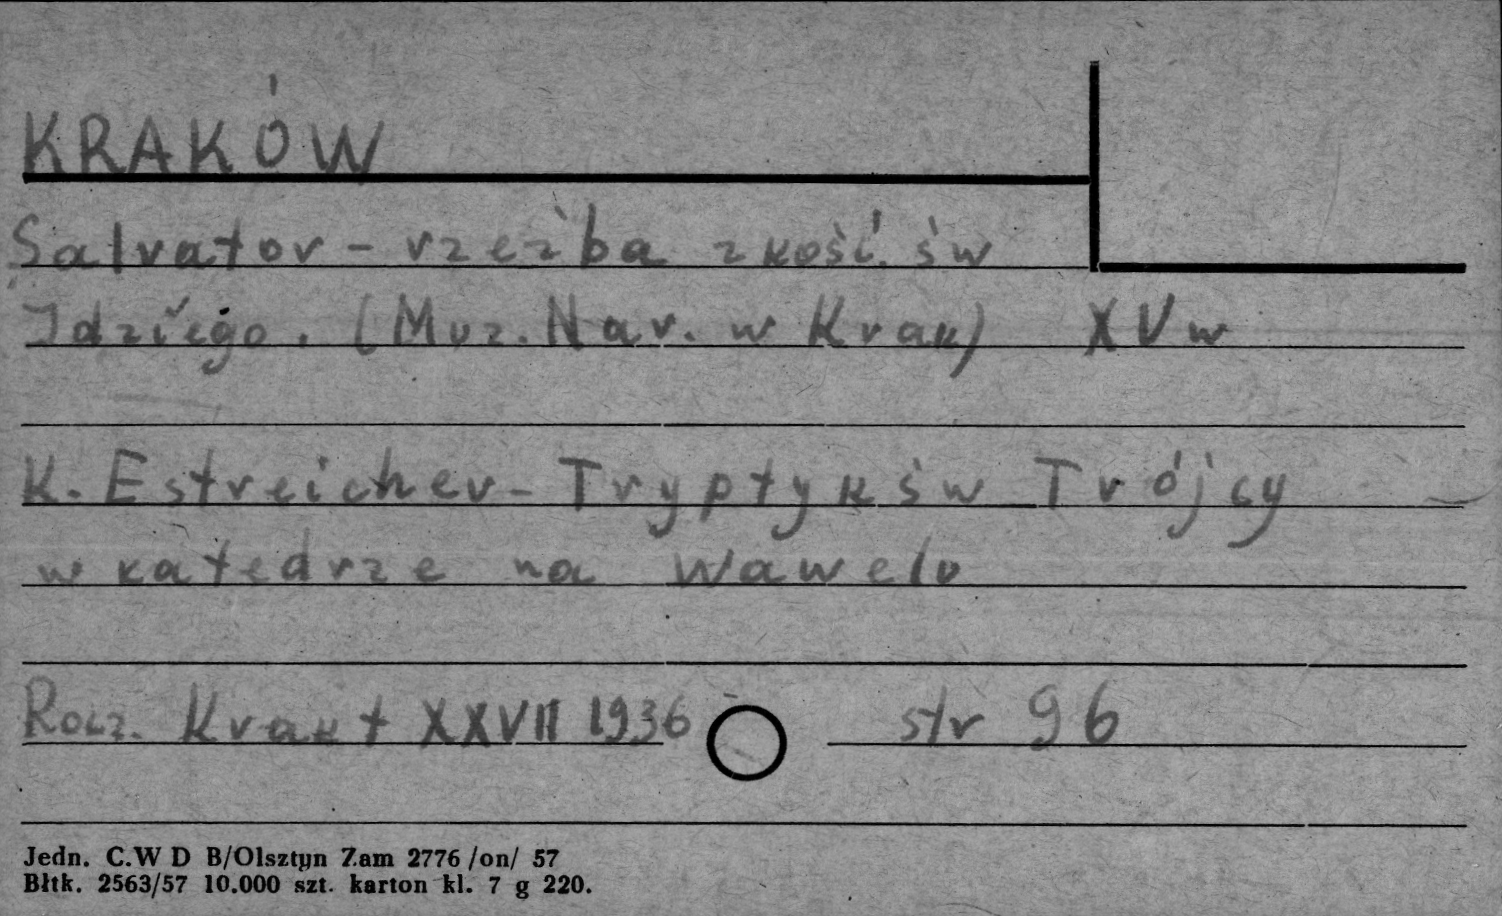 KRAKÓW
Salvator – rzeźba z kość. św
Idziego. (Muz. Nar. w Krak) XV w
K. Estreicher – Tryptyk św Trójcy
w katedrze na Wawelu
Rocz. Krak t XXVII 1936 str 96
Jedn. C.W D B/Olsztyn Zam 2776 /on/ 57
Błtk. 2563/57 10.000 szt. karton kl. 7 g 220.